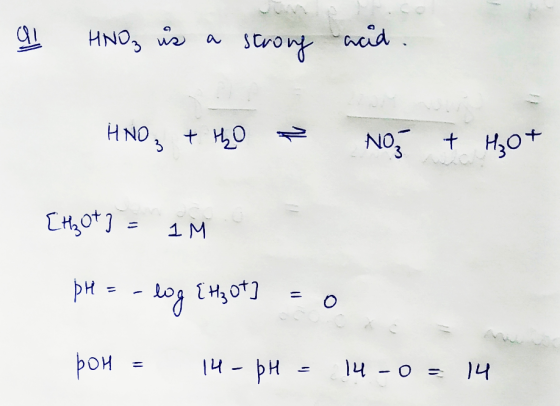 Q1 HNO₃ is a strong acid.
HNO₃ + H₂O ⇌ NO₃⁻ + H₃O⁺
[H₃O⁺] = 1 M
pH = - log [H₃O⁺] = 0
pOH = 14 - pH = 14 - 0 = 14